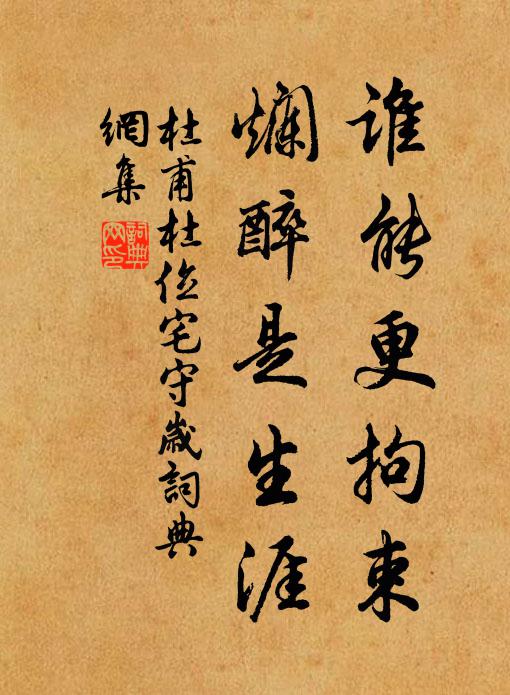 誰能更拘束
爛醉是生涯
杜甫杜位宅守歲詞典
網集
詞典
网印